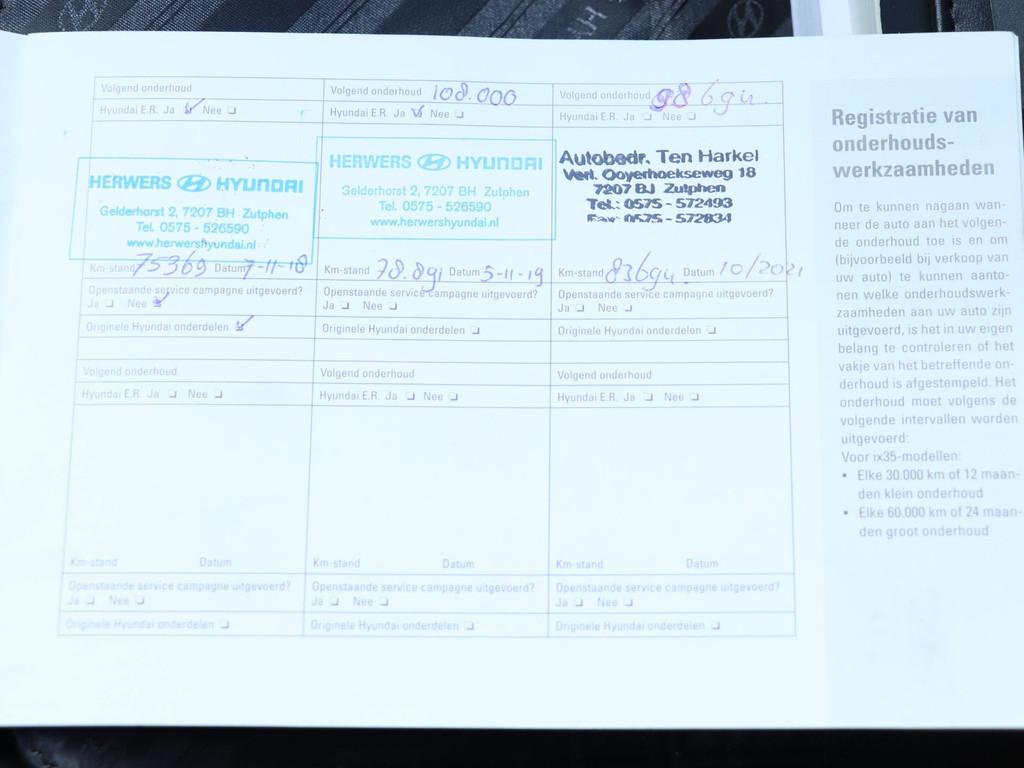 Volgend onderhoud
Hyundai E.R. Ja Nee
HERWERS HYUNDAI
Gelderhorst 2, 7207 BH Zutphen
Tel. 0575 - 526590
www.herwershyundai.nl
Km-stand 75369 Datum 7-11-18
Openstaande service campagne uitgevoerd?
Ja Nee
Originele Hyundai onderdelen
Volgend onderhoud 108.000
Hyundai E.R. Ja Nee
HERWERS HYUNDAI
Gelderhorst 2, 7207 BH Zutphen
Tel. 0575 - 526590
www.herwershyundai.nl
Km-stand Datum 5-11-19
Openstaande service campagne uitgevoerd?
Ja Nee
Originele Hyundai onderdelen
Volgend onderhoud
Hyundai E.R. Ja Nee
Autobedr. Ten Harkel
Verl. Ooyerhoekseweg 18
7207 BJ Zutphen
Tel.: 0575 - 572493
Fax: 0575 - 572834
Km-stand Datum 10/2021
Openstaande service campagne uitgevoerd?
Ja Nee
Originele Hyundai onderdelen
Volgend onderhoud
Hyundai E.R. Ja Nee
Km-stand Datum
Openstaande service campagne uitgevoerd?
Ja Nee
Originele Hyundai onderdelen
Volgend onderhoud
Hyundai E.R. Ja Nee
Km-stand Datum
Openstaande service campagne uitgevoerd?
Ja Nee
Originele Hyundai onderdelen
Volgend onderhoud
Hyundai E.R. Ja Nee
Km-stand Datum
Openstaande service campagne uitgevoerd?
Ja Nee
Originele Hyundai onderdelen
Registratie van
onderhouds-
werkzaamheden
Om te kunnen nagaan wan-
neer de auto aan het volgen-
de onderhoud toe is en om
(bijvoorbeeld bij verkoop van
uw auto) te kunnen aanto-
nen welke onderhoudswerk-
zaamheden aan uw auto zijn
uitgevoerd, is het in uw eigen
belang te controleren of het
vakje van het betreffende on-
derhoud is afgestempeld. Het
onderhoud moet volgens de
volgende intervallen worden
uitgevoerd:
Voor ix35-modellen:
• Elke 30.000 km of 12 maan-
den klein onderhoud
• Elke 60.000 km of 24 maan-
den groot onderhoud